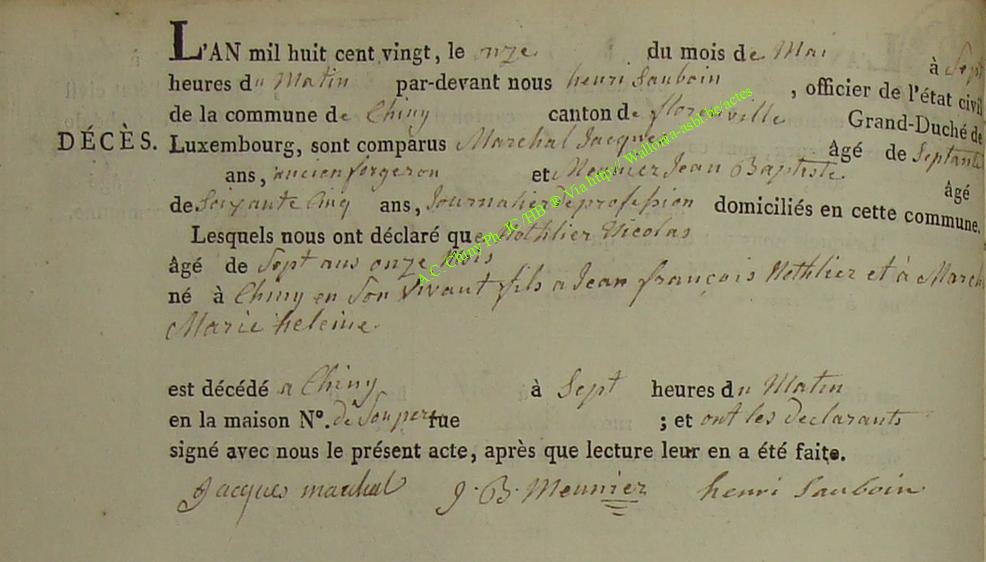 L'AN mil huit cent vingt, le onze du mois de Mai à Sept
heures du Matin par-devant nous henri Sauboin , officier de l'état civil
de la commune de Chiny canton de florenville Grand-Duché de
DÉCÈS. Luxembourg, sont comparus Marchal Jacques âgé de Septante
ans, ancien forgeron et Meunier Jean Baptiste âgé
de Soixante Cinq ans, Journalier De profession domiciliés en cette commune.
Lesquels nous ont déclaré que Nothlier Nicolas
âgé de Sept ans onze Mois
né à Chiny en Son vivant fils a Jean françois Nothlier et à March
Marie heleine.
est décédé a Chiny à Sept heures du Matin
en la maison N°. de Son pere rue ; et ont les Declarants
signé avec nous le présent acte, après que lecture leur en a été faite.
Jacques marchal J. B. Meunier henri Sauboin
A.C. Chiny Ph. JC /HB ® Via http// Wallonia-asbl.be/actes